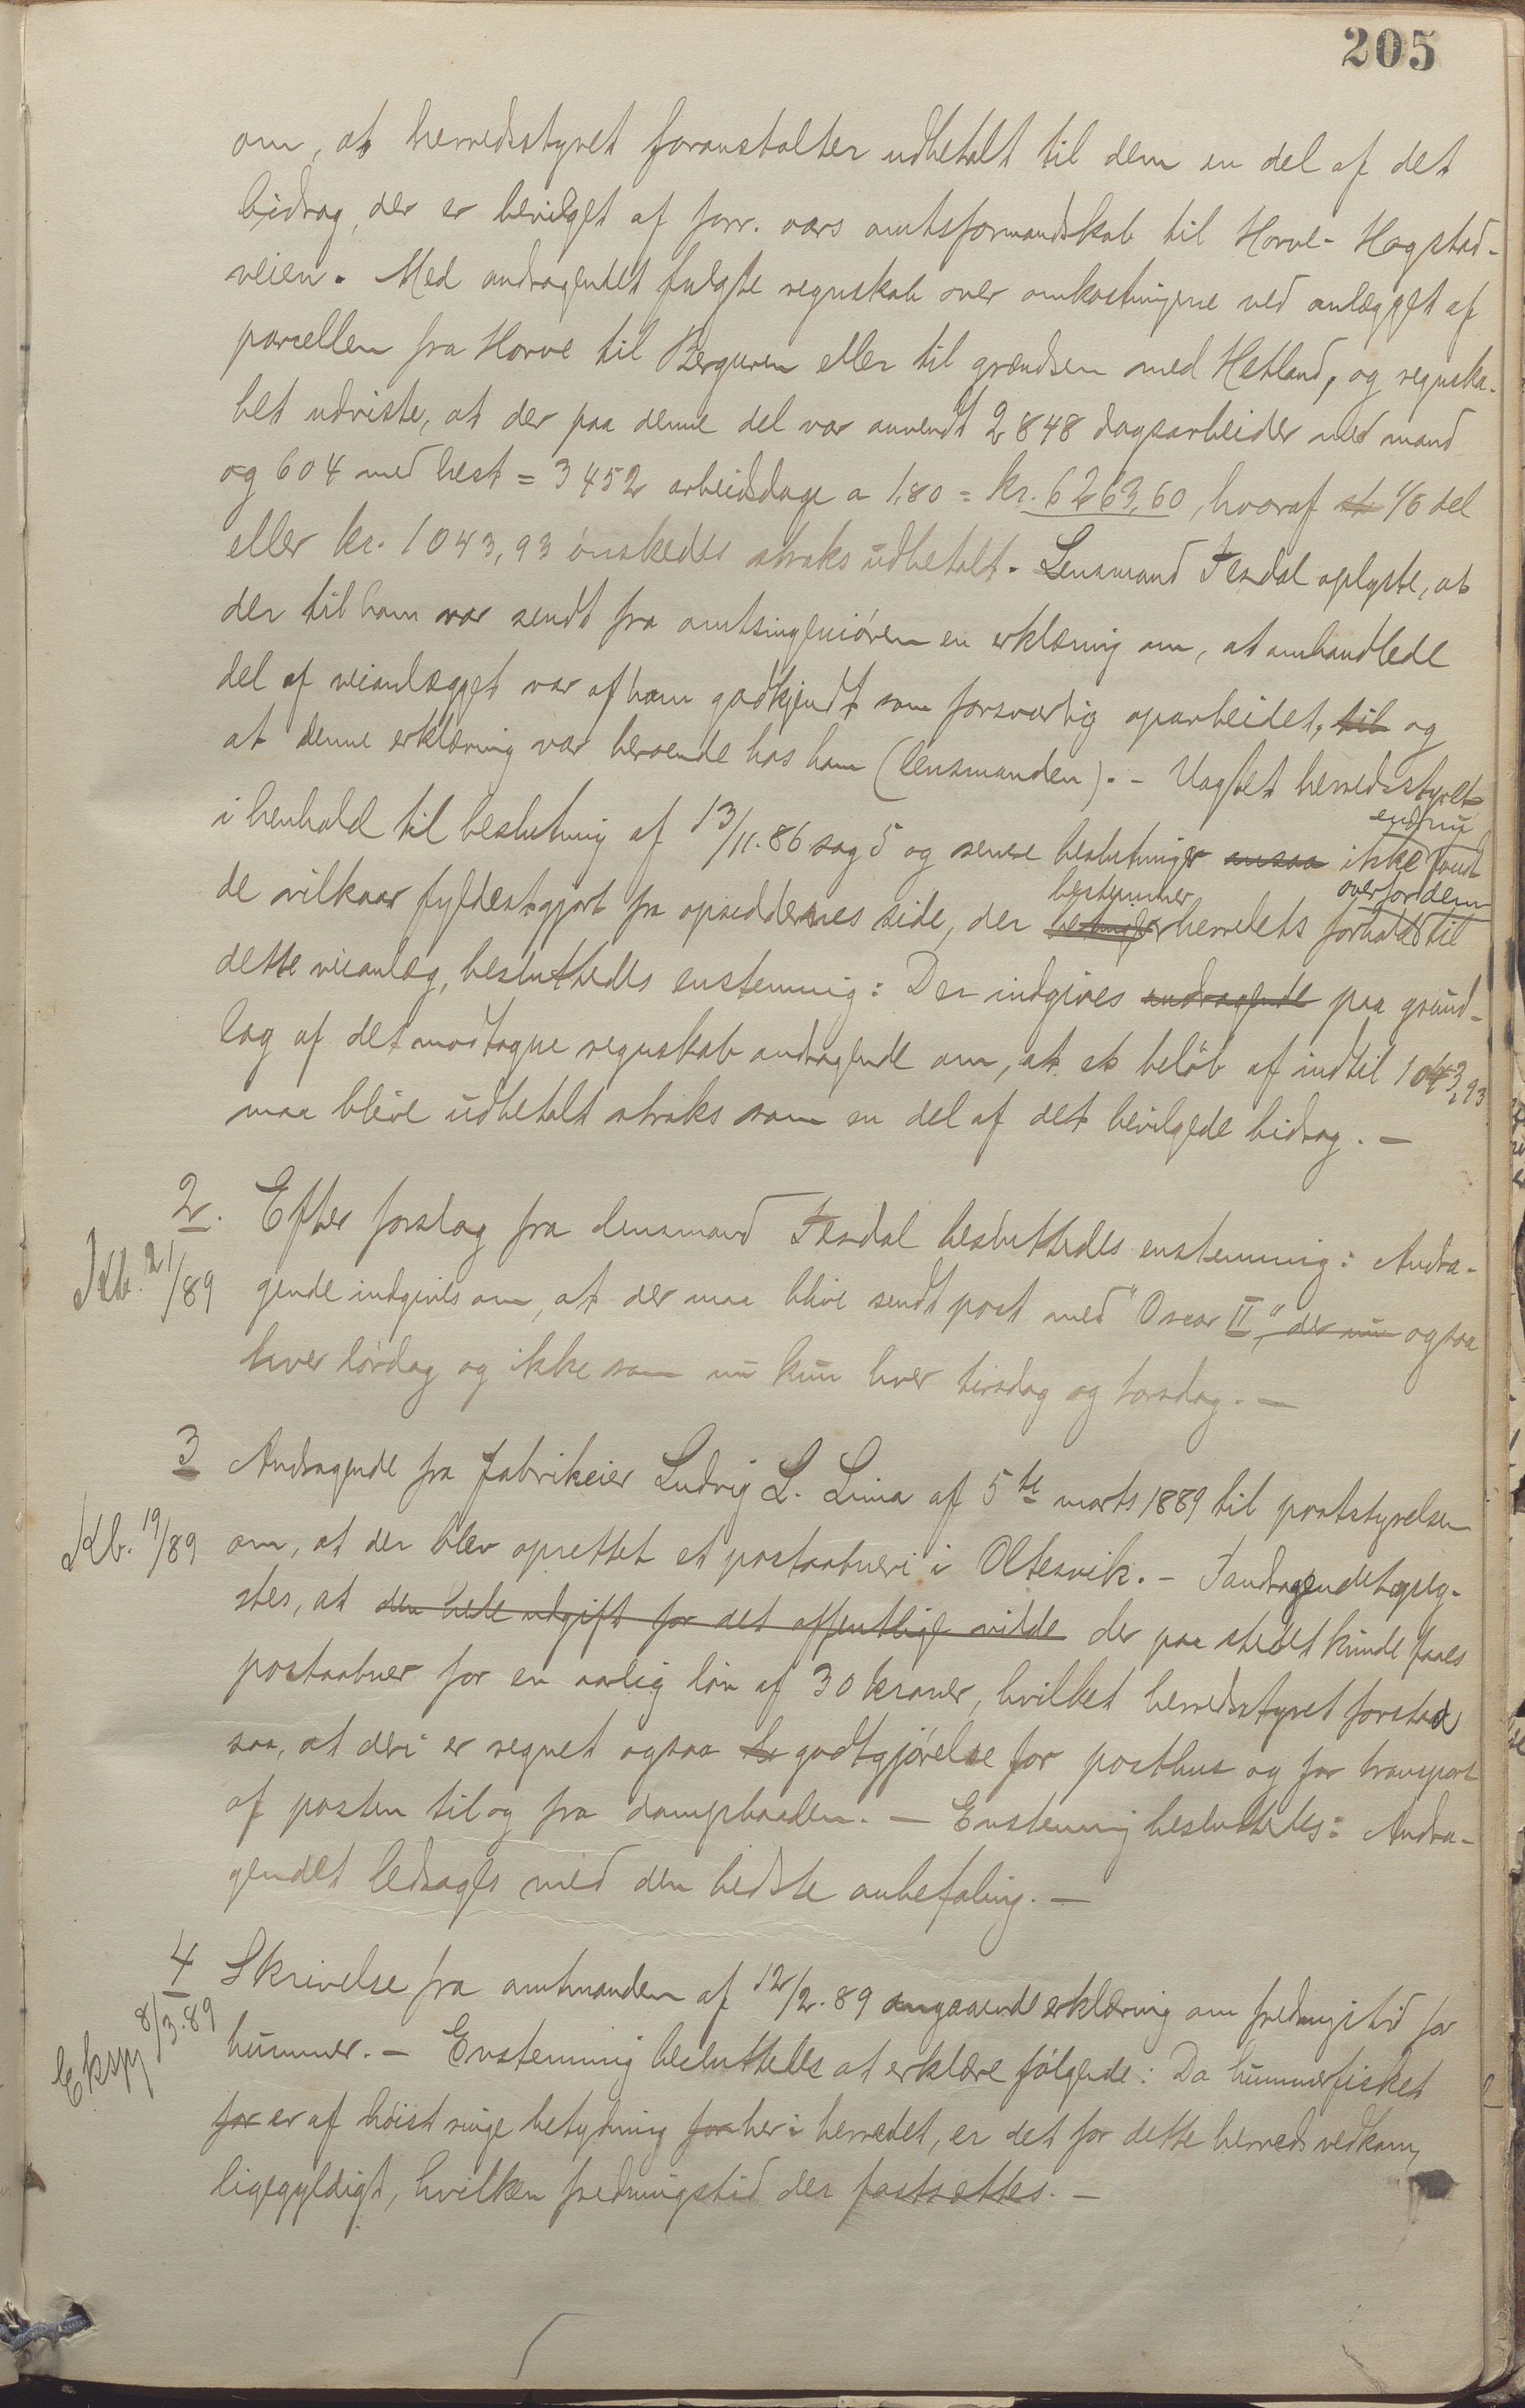 205
om, at herredsstyret foranstalter udbetalt til dem en del af det
bidrag, der er bevilget af forr. aars amtsformandskab til Horve-Hogstad-
veien. Med andragendet fulgte regnskab over omkostningerne ved anlægget af
parcellen fra Horve til Berguren eller til grændsen med Hetland, og regnska-
bet udviste, at der paa denne del var anvendt 2848 dagsarbeider med mand
og 604 med hest = 3452 arbeidsdage a 1,80 = kr. 6263,60, hvoraf et 1/6 del
eller kr. 1043,93 ønskedes straks udbetalt. Lensmand Tesdal oplyste, at
der til ham var sendt fra amtsingeniøren en erklæring om, at omhandlede
del af veianlægget var af ham godkjendt som forsvarlig oparbeidet, til og
at denne erklæring var beroende hos ham (lensmanden). - Uagtet herredsstyret
endnu
i henhold til beslutning af 13/11.86 sag 5 og senere beslutninger ansaa ikke fandt
bestemmer overfor dem
de vilkaar fyldestgjort fra opsiddernes side, der betinger herredets forhold til
dette veianlæg, besluttedes enstemmig: Der indgives andragende paa grund-
lag af det modtagne regnskab andragende om, at et beløb af indtil 1043,93
maa blive udbetalt straks som en del af det bevilgede bidrag. -
2. Efter forslag fra lensmand Tesdal besluttedes enstemmig: Andra-
Kb. 21/89 gende indgives om, at der maa blive sendt post med "Oscar II", der nu ogsaa
hver lørdag og ikke som nu kun hver tirsdag og torsdag. -
3 Andragende fra fabrikeier Ludvig L. Lima af 5te marts 1889 til poststyrelsen
Kb. 19/89 om, at der blev oprettet et postaabneri i Oltesvik. - I andragendet oply-
stes, at den hele udgift for det offentlige vilde der paa stedet kunde faaes
postaabner for en aarlig løn af 30 kroner, hvilket herredsstyret forstod
saa, at deri er regnet ogsaa godtgjørelse for posthus og for transport
af posten til og fra dampbaaden. - Enstemmig besluttedes: Andra-
gendet ledsages med den bedste anbefaling. -
4 Skrivelse fra amtmanden af 12/2.89 angaaende erklæring om fredningstid for
Eksp 8/3.89 hummer. - Enstemmig besluttedes at erklære følgende: Da hummerfisket
for er af høist ringe betydning for her i herredet, er det for dette herreds vedkom,
ligegyldigt, hvilken fredningstid der fastsættes. -